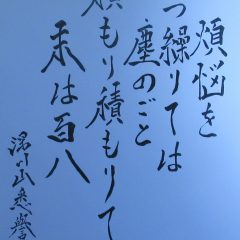 煩悩を
つ繰りては
塵のごと
積もり積もりて
末は百八
湯川山悉誉